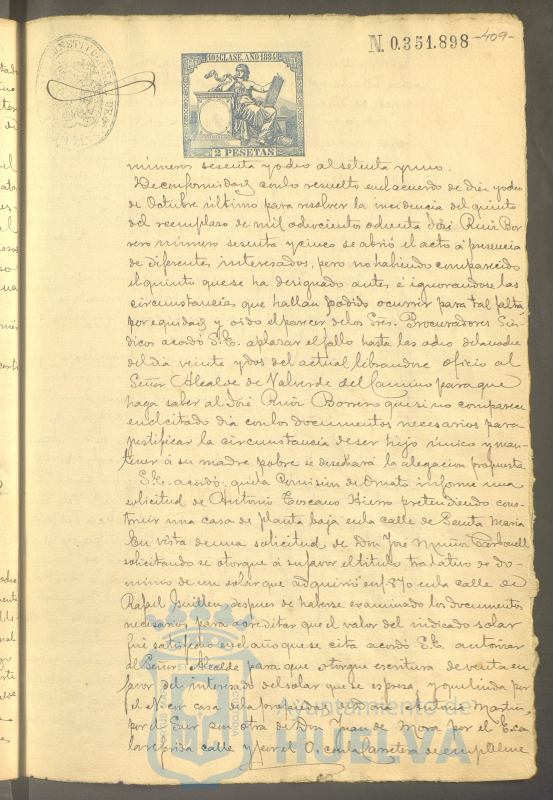 N. 0.351.898 -409-
CONSTITUCIONAL DE
10ª CLASE. AÑO 1884
2 PESETAS
números sesenta y ocho al setenta y uno.
De conformidad con lo resuelto en el acuerdo de diez y ocho
de Octubre último para resolver la incidencia del quinto
del reemplazo de mil ochocientos ochenta José Ruiz Bor
rero número sesenta y cinco se abrió el acto a presencia
de diferentes interesados, pero no habiendo comparecido
el quinto que se ha designado antes é ignorandose las
circunstancias que hallan podido ocurrir para tal falta,
por equidad y oido el parecer de los Sres. Procuradores Sín-
dicos acordó S.E. aplazar el fallo hasta las ocho de la noche
del dia veinte y dos del actual librandose oficio al
Señor Alcalde de Valverde del Camino para que
haga saber al José Ruiz Borrero que si no comparece
en el citado dia con los documentos necesarios para
justificar la circunstancia de ser hijo único y man-
tener á su madre pobre se desechará la alegacion propuesta
S.E. acordó, que la Comisión de Ornato informe una
solicitud de Antonio Toscano Hierro pretendiendo cons-
truir una casa de planta baja en la calle de Santa Maria
En vista de una solicitud de Don José Muñoz
solicitando se otorgue á su favor el titulo traslativo de do-
minio de un solar que adquirió en 1870 en la calle de
Rafael Guillen, despues de haberse examinado los documentos
necesarios para acreditar que el valor del indicado solar
fué satisfecho en el año que se cita acordó S.E. autorizar
al Señor Alcalde para que otorgue escritura de venta en
favor del interesado del solar que se espresa, y que linda por
el N. con casa de la propiedad de Antonia Martin,
por el Sur con otra de Don Juan de Mora por el E. con
la referida calle y por el O. con la carretera de empalme
Ayuntamiento de
HUELVA